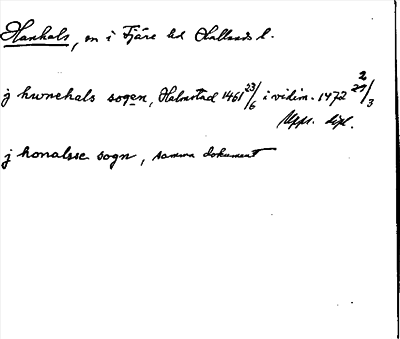 Hanhals, en i Fjäre hd Hallands l.
j hwnehals sogen, Halmstad 1461 23/6 i vidim. 1472 2/3
Upps. dipl.
j honalsse sogn, samma dokument